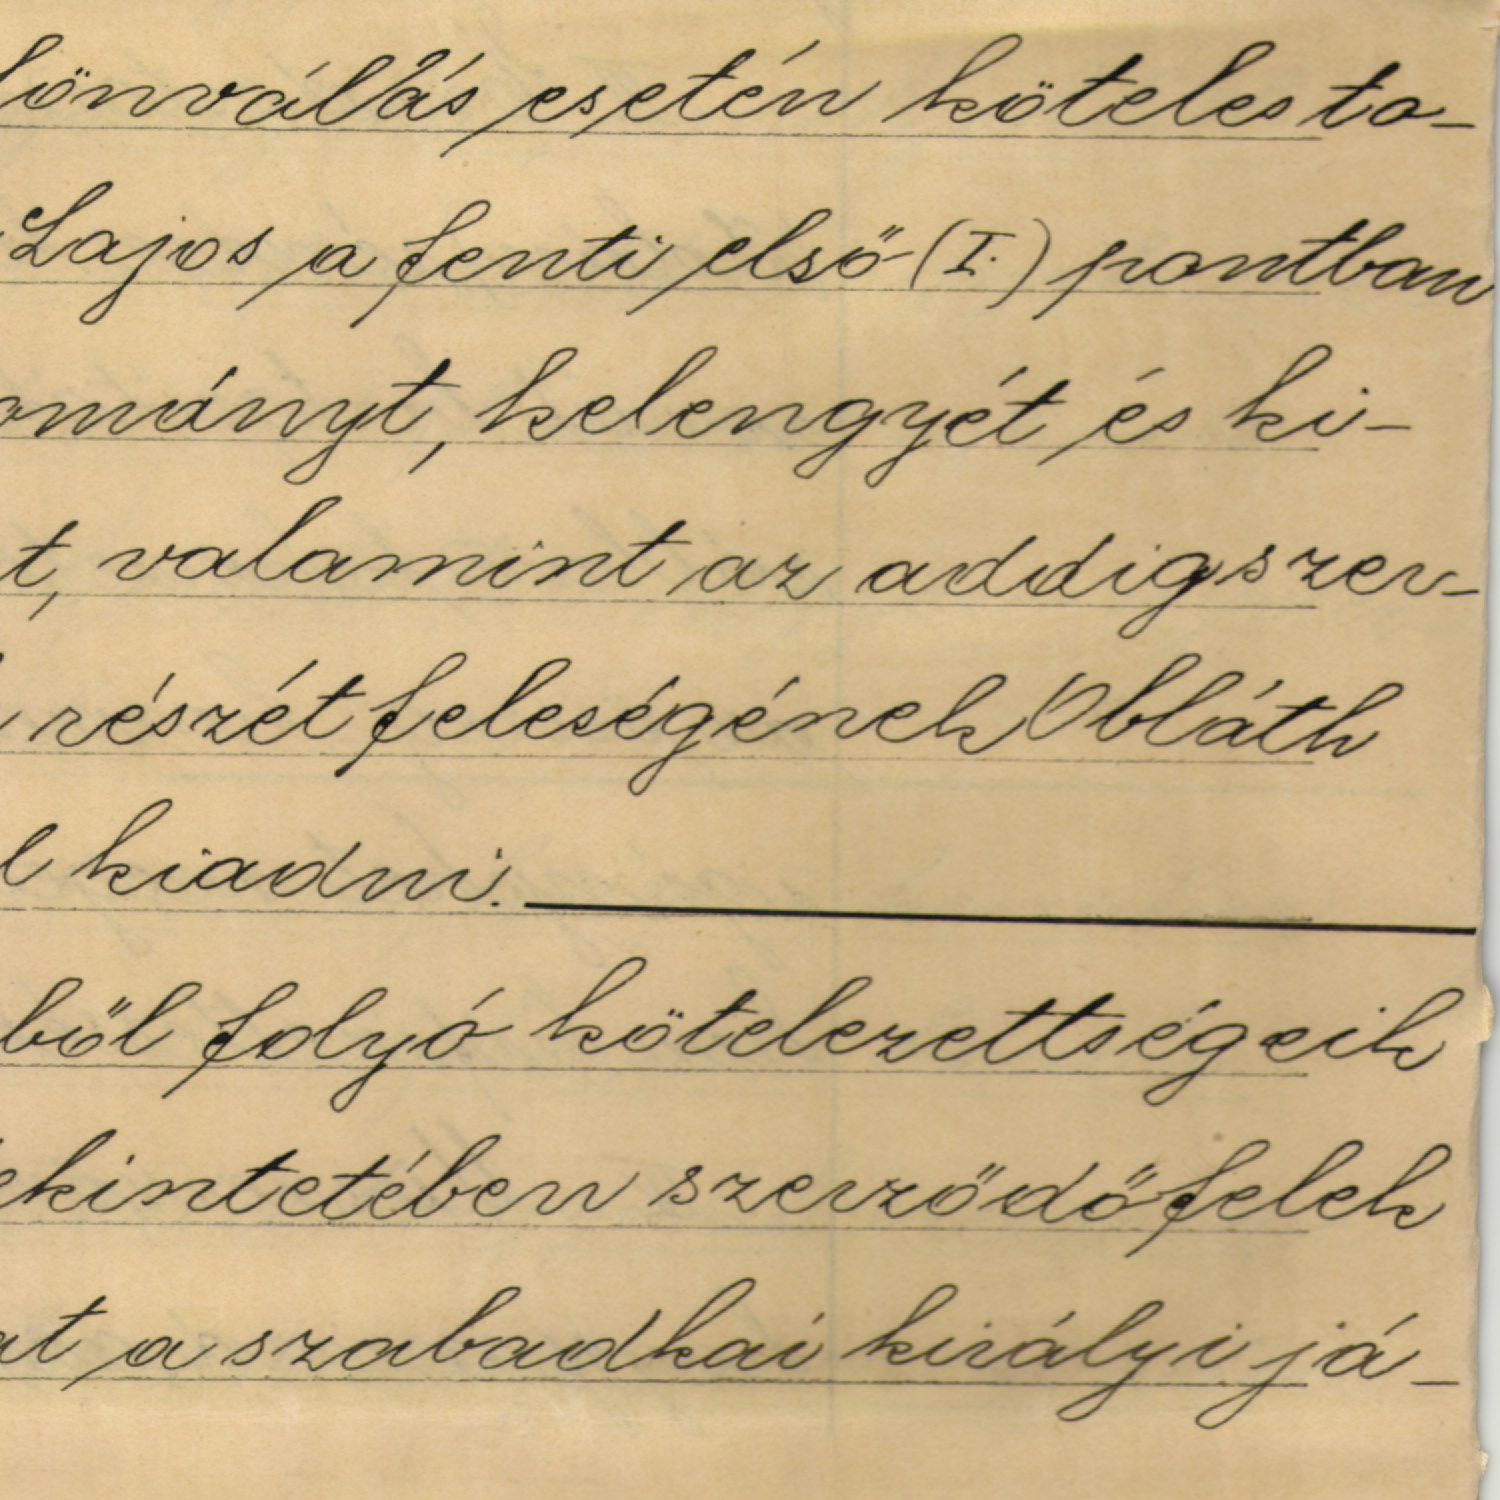 lönválás esetén köteles to-
Lajos a fenti első (I.) pontban
ományt, kelengyét és ki-
t, valamint az addig szer-
részét feleségének Obláth
l kiadni.
ből folyó kötelezettségeik
ekintetében szerződőfelek
at a szabadkai királyi já-